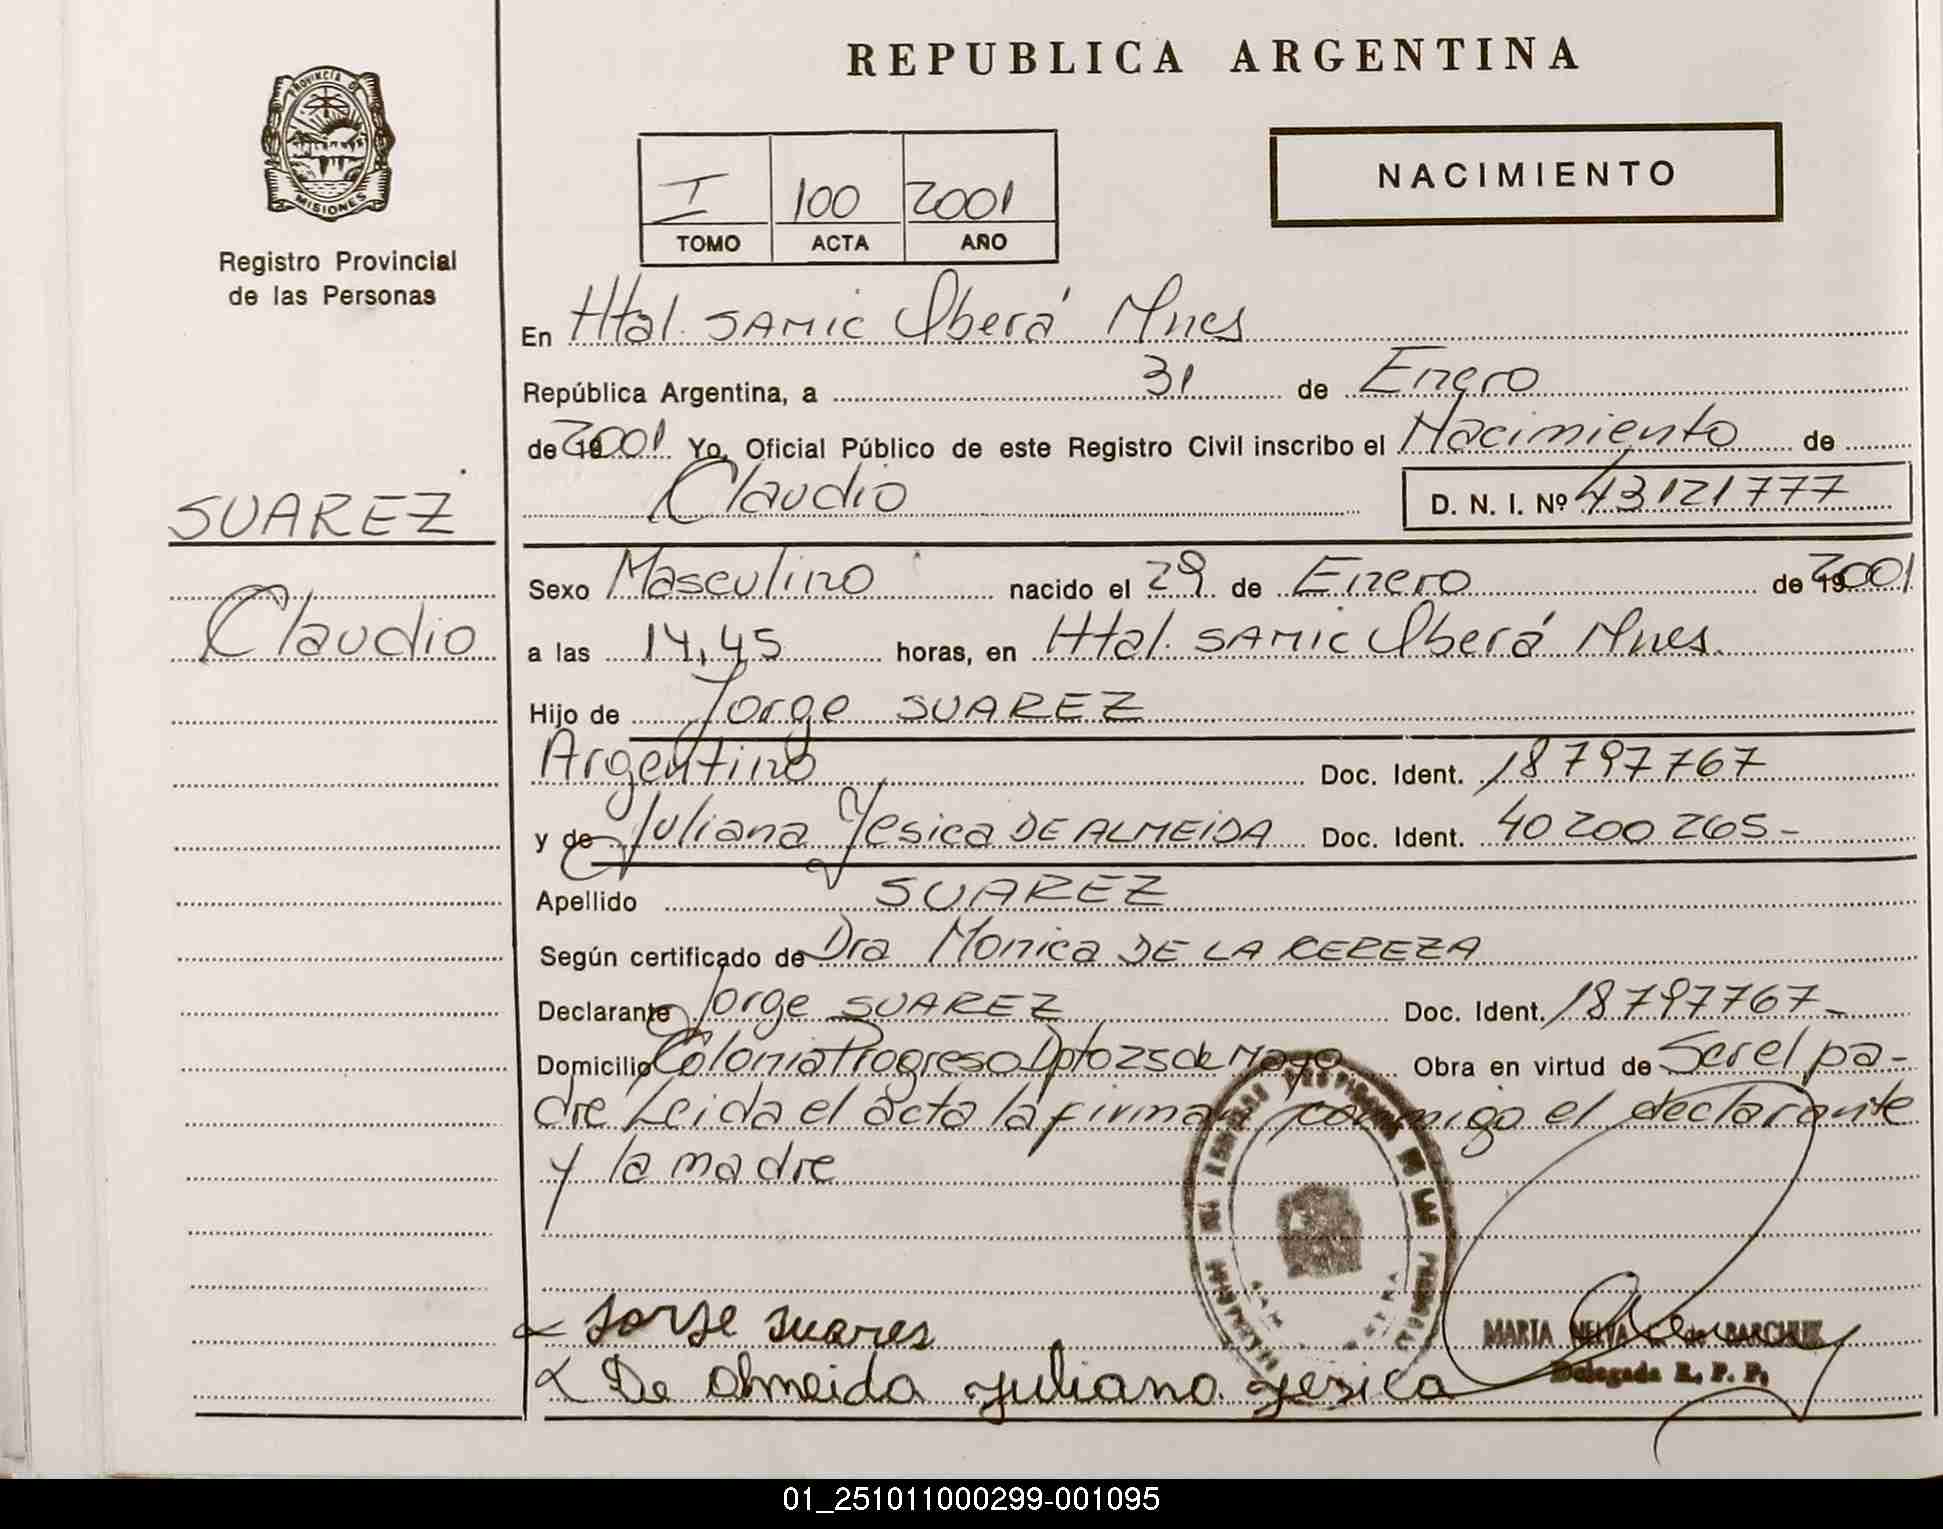 REPUBLICA ARGENTINA
PROVINCIA DE MISIONES
Registro Provincial
de las Personas
I 100 2001
TOMO ACTA AÑO
NACIMIENTO
En Htal. SAMIC Oberá Mnes
República Argentina, a 31 de Enero
de 2001 Yo, Oficial Público de este Registro Civil inscribo el Nacimiento de
Claudio D. N. I. Nº 43121777
SUAREZ
Claudio
Sexo Masculino nacido el 29 de Enero de 2001
a las 14,45 horas, en Htal. SAMIC Oberá Mnes.
Hijo de Jorge SUAREZ
Argentino Doc. Ident. 18797767
y de Juliana Yesica DE ALMEIDA Doc. Ident. 40200265-
Apellido SUAREZ
Según certificado de Dra Monica DE LA
Declarante Jorge SUAREZ Doc. Ident. 18797767-
Domicilio Colonia Progreso Dpto 25 de Mayo Obra en virtud de Ser el pa-
dre Leida el acta la firman conmigo el declarante
y la madre
Jorge suares
De almeida juliana yesica
MARIA
Delegada R. P. P.
01_251011000299-001095